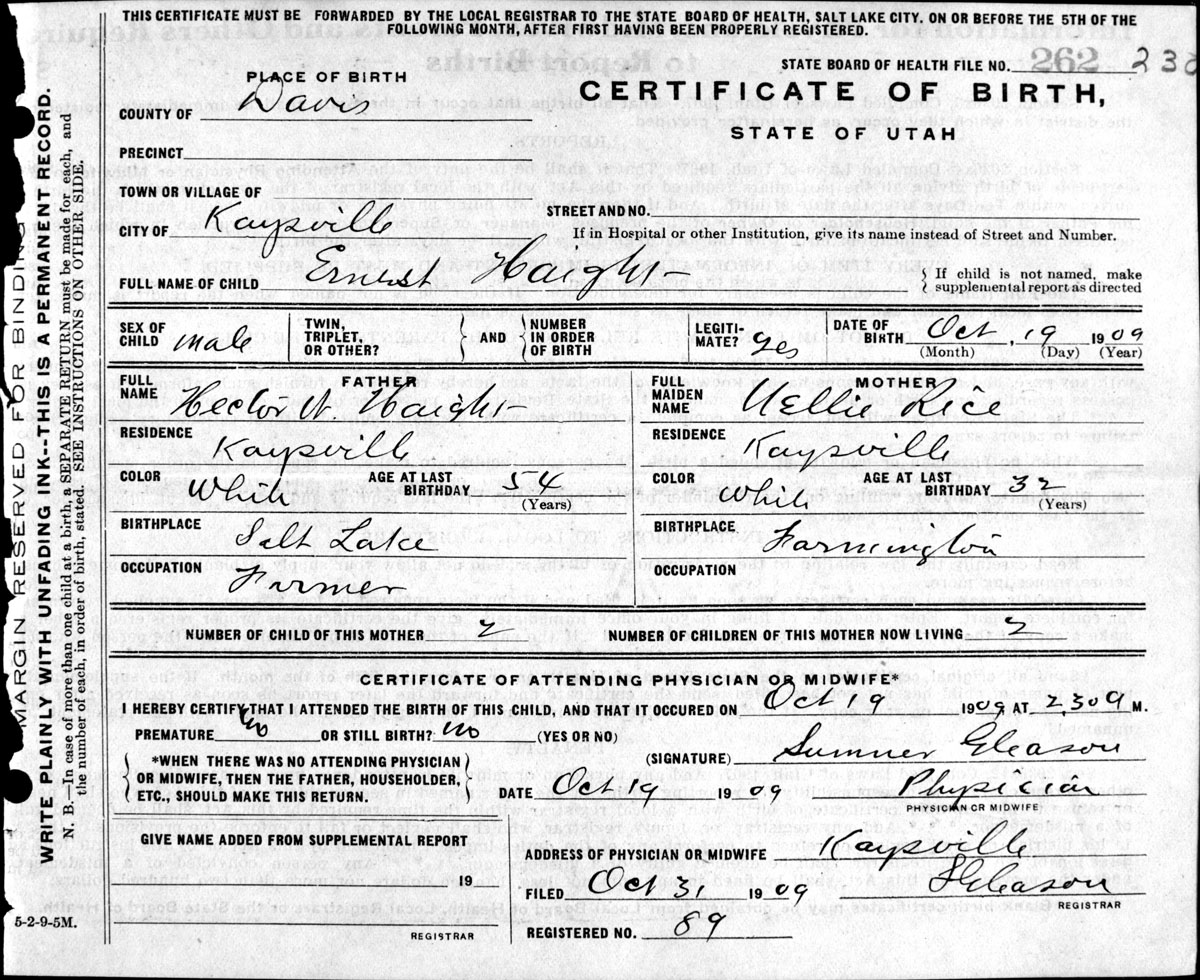 THIS CERTIFICATE MUST BE FORWARDED BY THE LOCAL REGISTRAR TO THE STATE BOARD OF HEALTH, SALT LAKE CITY. ON OR BEFORE THE 5TH OF THE
FOLLOWING MONTH, AFTER FIRST HAVING BEEN PROPERLY REGISTERED.
STATE BOARD OF HEALTH FILE NO. 262
PLACE OF BIRTH
COUNTY OF Davis
CERTIFICATE OF BIRTH,
STATE OF UTAH
PRECINCT
TOWN OR VILLAGE OF
CITY OF Kaysville
STREET AND NO.
If in Hospital or other Institution, give its name instead of Street and Number.
FULL NAME OF CHILD Ernest Haight
{ If child is not named, make
supplemental report as directed
SEX OF CHILD male
TWIN, TRIPLET, OR OTHER?
} AND {
NUMBER IN ORDER OF BIRTH
LEGITIMATE? yes
DATE OF BIRTH Oct, 19 1909
(Month) (Day) (Year)
FATHER
FULL NAME Hector W Haight
RESIDENCE Kaysville
COLOR White AGE AT LAST BIRTHDAY 54
(Years)
BIRTHPLACE Salt Lake
OCCUPATION Farmer
MOTHER
FULL MAIDEN NAME Nellie Rice
RESIDENCE Kaysville
COLOR White AGE AT LAST BIRTHDAY 32
(Years)
BIRTHPLACE Farmington
OCCUPATION
NUMBER OF CHILD OF THIS MOTHER 2 NUMBER OF CHILDREN OF THIS MOTHER NOW LIVING 2
CERTIFICATE OF ATTENDING PHYSICIAN OR MIDWIFE*
I HEREBY CERTIFY THAT I ATTENDED THE BIRTH OF THIS CHILD, AND THAT IT OCCURED ON Oct 19 1909 AT 2,30 M.
PREMATURE no OR STILL BIRTH? no (YES OR NO)
(SIGNATURE) Sumner Gleason
{ *WHEN THERE WAS NO ATTENDING PHYSICIAN
OR MIDWIFE, THEN THE FATHER, HOUSEHOLDER,
ETC. SHOULD MAKE THIS RETURN. }
DATE Oct 19 1909 Physician
PHYSICIAN OR MIDWIFE
GIVE NAME ADDED FROM SUPPLEMENTAL REPORT
19
REGISTRAR
ADDRESS OF PHYSICIAN OR MIDWIFE Kaysville
FILED Oct 31 1909 S Gleason
REGISTRAR
REGISTERED NO. 89
5-2-9-5M.
MARGIN RESERVED FOR BINDING
WRITE PLAINLY WITH UNFADING INK--THIS IS A PERMANENT RECORD.
N. B.—In case of more than one child at a birth, a SEPARATE RETURN must be made for each, and
the number of each, in order of birth, stated. SEE INSTRUCTIONS ON OTHER SIDE.